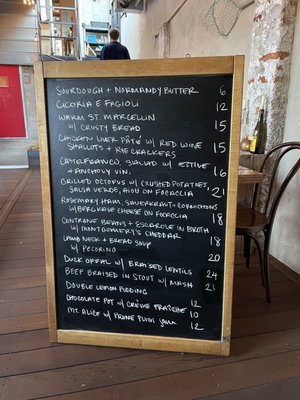 SOURDOUGH + NORMANDY BUTTER 6
CICORIA E FAGIOLI 12
WARM ST. MARCELLIN
W/ CRUSTY BREAD 15
CHICKEN LIVER PATÉ W/ RED WINE
SHALLOTS + RYE CRACKERS 15
CASTELFRANCO SALAD W/ ENDIVE
+ ANCHOVY VIN. 16
GRILLED OCTOPUS W/ CRUSHED POTATOES,
SALSA VERDE, AIOLI ON FOCACCIA 21
ROSEMARY HAM, SAUERKRAUT + CORNICHONS
W/ BERGKASE CHEESE ON FOCACCIA 18
CONTRONE BEANS + ESCAROLE IN BROTH
W/ MONTGOMERY'S CHEDDAR 18
LAMB NECK + BREAD SOUP
W/ PECORINO 18
DUCK OFFAL W/ BRAISED LENTILS 20
BEEF BRAISED IN STOUT W/ MASH 24
21
DOUBLE LEMON PUDDING 12
CHOCOLATE POT W/ CRÈME FRAÎCHE 10
MT. ALICE W/ PRUNE PLUM 12